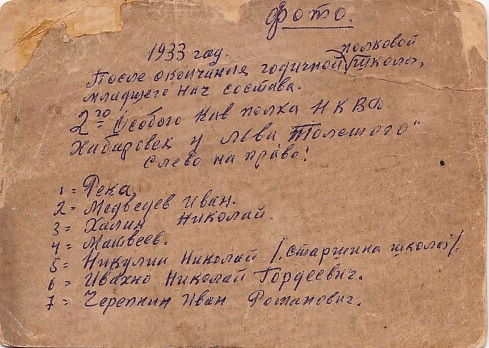 Фото.
1933 год.
После окончания годичной полковой школы,
младшего нач состава.
2го Особого Кав полка НКВД
Хабаровск у Льва Толстого"
Слево на право!
1 = Река,
2 = Медведев Иван.
3 = Халин Николай.
4 = Матвеев.
5 = Никулин Николай /старшина школы/.
6 = Ивахно Николай Гордеевич.
7 = Черепнин Иван Романович.